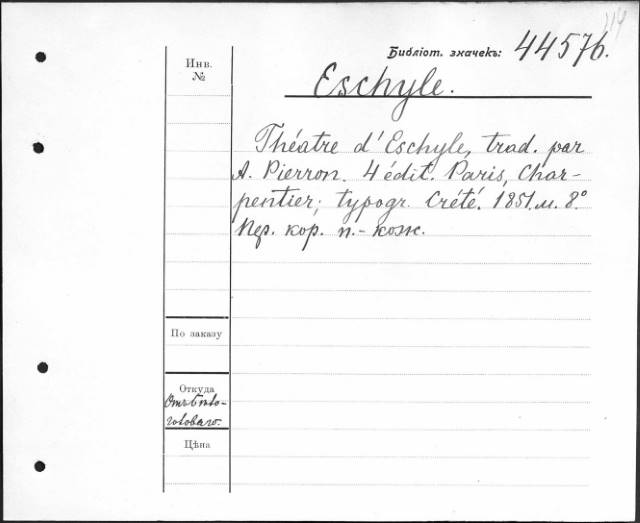 214
Библіот. значекъ: 44576.
Инв.
№
Eschyle.
Théatre d'Eschyle, trad. par
A. Pierron. 4 édit. Paris, Char-
pentier; typogr. Crété. 1851. м. 8°
Пер. кор. п.-кож.
По заказу
Откуда
Цѣна